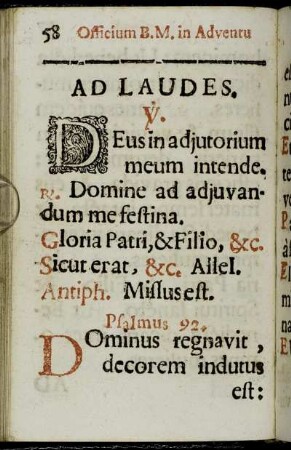 58 Officium B.M. in Adventu
AD LAUDES.
℣.
DEus in adjutorium
meum intende.
℞. Domine ad adjuvan-
dum me festina.
Gloria Patri, & Filio, &c.
Sicut erat, &c. Allel.
Antiph. Missus est.
Psalmus 92.
DOminus regnavit,
decorem indutus
est: